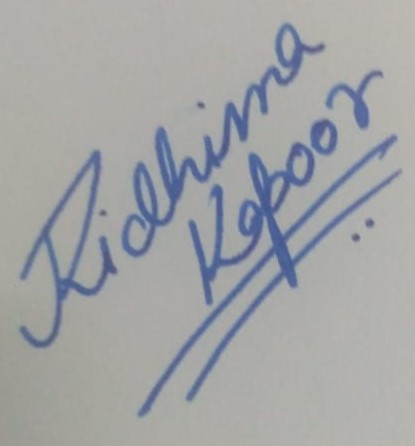 Ridhima
Kapoor